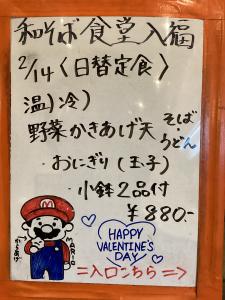 和そば食堂入福
2/14〈日替定食〉
温)冷)
野菜かきあげ天
そば・うどん
・おにぎり(玉子)
・小鉢2品付
¥880.-
HAPPY
VALENTINE'S
DAY
MARIO
=入口こちら=>